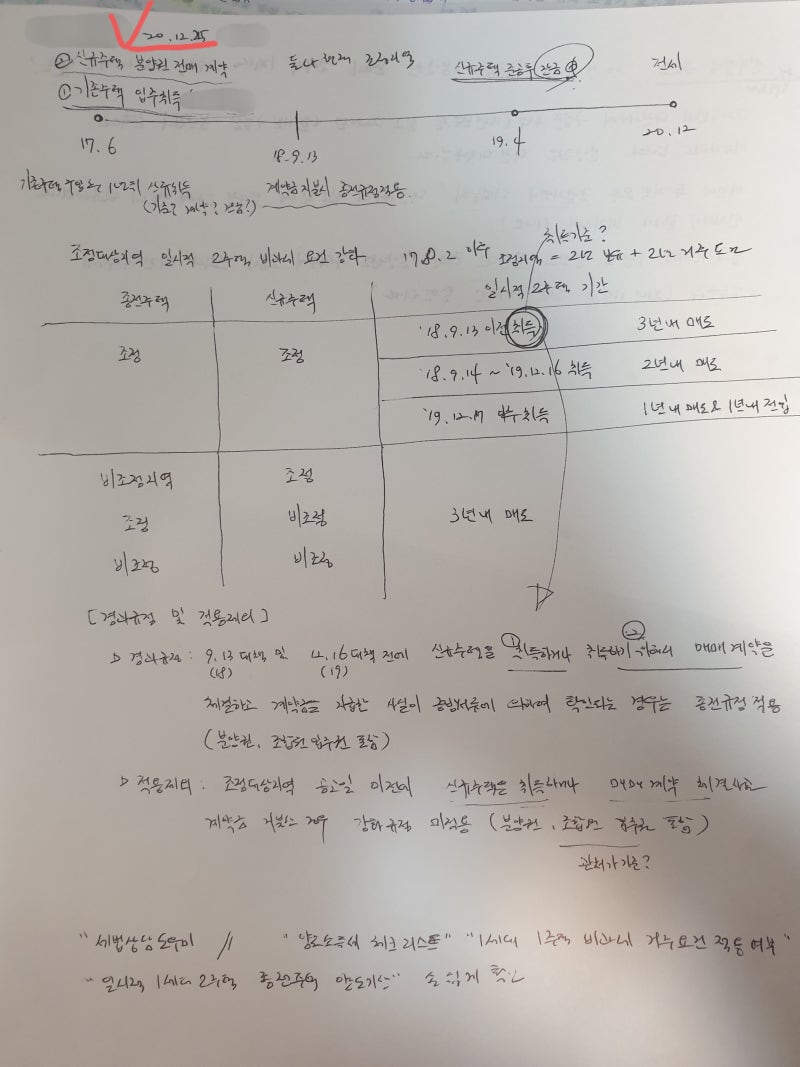 20.12.25
② 신규주택 분양권 전매 계약
① 기존주택 입주취득
신규주택 준공후 잔금
전세
17.6
18.9.13
19.4
20.12
계약금 지불시 종전규정적용.
취득기준?
조정대상지역 일시적 2주택 비과세 요건 강화
17.8.2 이후 조정지역 = 2년 보유 + 2년 거주 요건
종전주택 신규주택 일시적 2주택 기간
조정 조정
'18.9.13 이전 취득 3년내 매도
'18.9.14 ~ '19.12.16 취득 2년내 매도
'19.12.17 이후 취득 1년내 매도 & 1년내 전입
비조정지역 조정
조정 비조정
비조정 비조정
3년내 매도
[경과규정 및 적용제외]
▷ 경과규정 : 9.13 대책 및 12.16 대책 전에 신규주택을 ①취득하거나 ②취득하기 위해서 매매 계약을
(18) (19)
체결하고 계약금을 지급한 사실이 증빙서류에 의하여 확인되는 경우는 종전규정 적용
(분양권, 조합원입주권 포함)
▷ 적용제외 : 조정대상지역 공고일 이전에 신규주택을 취득하거나 매매 계약 체결하고
계약금 지불한 경우 강화규정 미적용 (분양권, 조합원 입주권 포함)
관처가 기준?
"세법상담도우미 // "양도소득세 체크리스트" "1세대 1주택 비과세 거주요건 적용여부"
"일시적 1세대 2주택 종전주택 양도기한" 손쉽게 확인